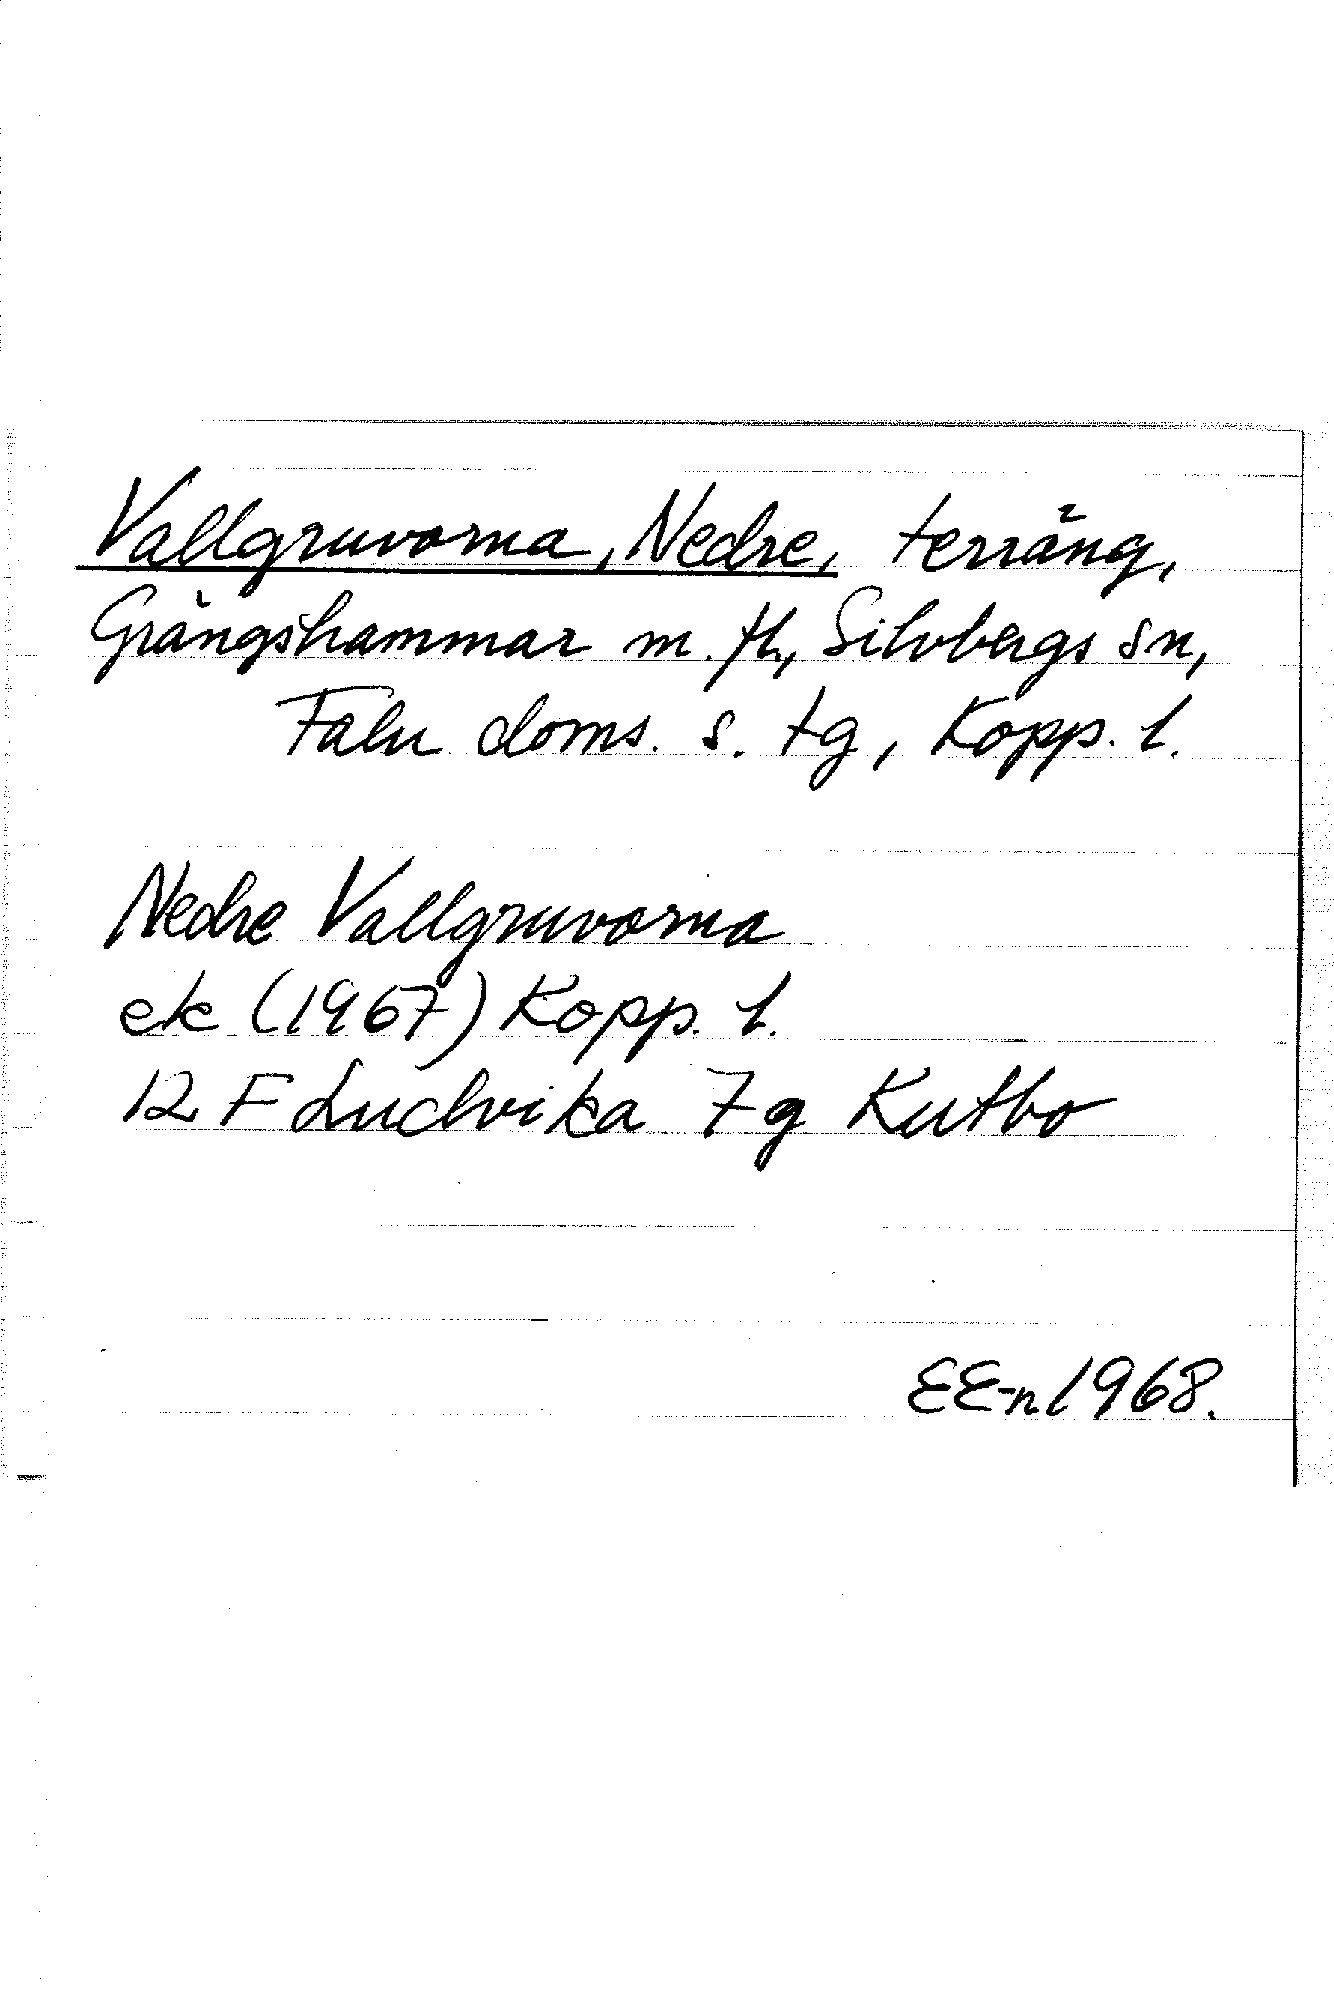 Vallgruvorna, Nedre, terräng,
Grängshammar m. fl., Silvbergs sn,
Falu doms. s. tg, Kopp. l.
Nedre Vallgruvorna
ek (1967) Kopp. l.
12 F Ludvika 7g Kutbo
EE-n 1968.